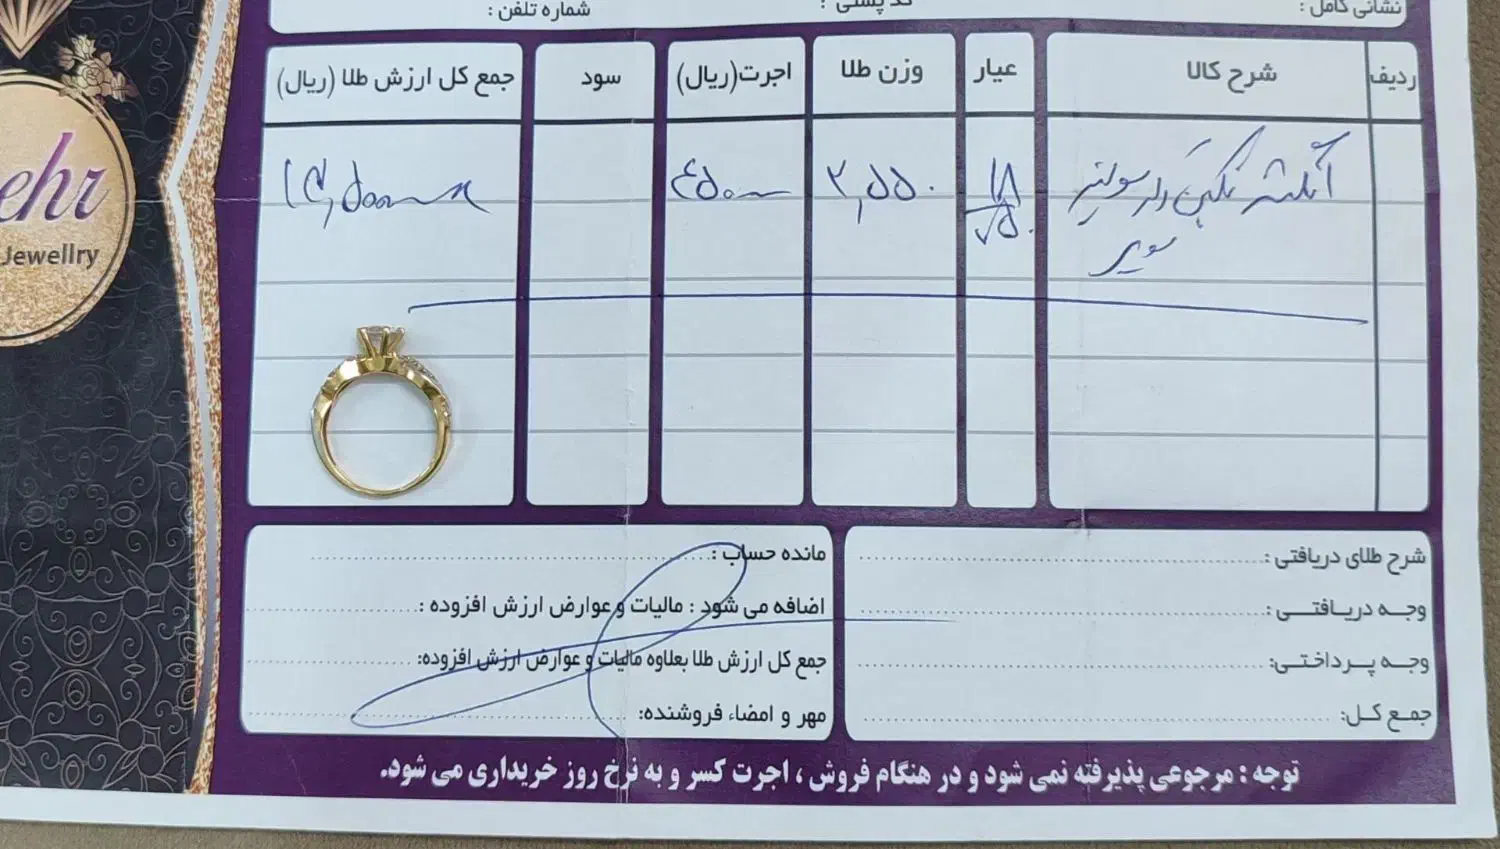 نشانی کامل :
شماره تلفن :
ردیف
شرح کالا
عیار
وزن طلا
اجرت(ریال)
سود
جمع کل ارزش طلا (ریال)
انگشتر نگین دار سولیتر
۱۸
۷۵۰
۳,۵۵۰
ehr
Jewellry
شرح طلای دریافتی :
وجه دریافتی :
وجه پرداختی:
جمع کل:
مانده حساب :
اضافه می شود : مالیات و عوارض ارزش افزوده :
جمع کل ارزش طلا بعلاوه مالیات و عوارض ارزش افزوده:
مهر و امضاء فروشنده:
توجه : مرجوعی پذیرفته نمی شود و در هنگام فروش ، اجرت کسر و به نرخ روز خریداری می شود.